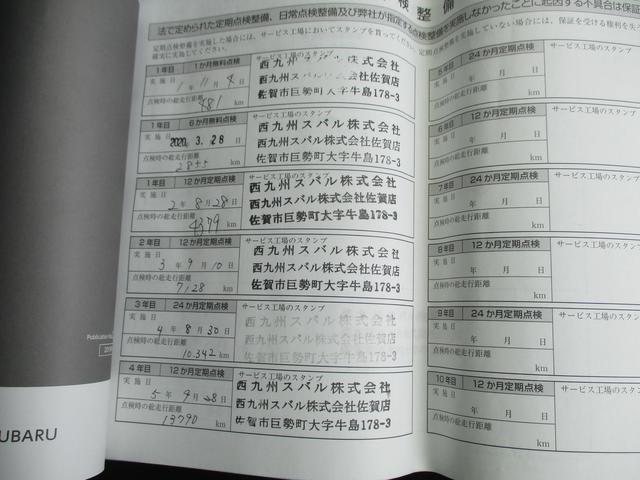 検整備
法で定められた定期点検整備、日常点検整備及び弊社が指定する点検整備を実施しなかったことに起因する不具合は保証
定期点検整備を実施した場合には、サービス工場にてスタンプを貰ってください。
定期点検整備を実施していない場合には、保証を受ける権利を失
確実に実施してください。
1年目 1か月無料点検
サービス工場のスタンプ
実施日
1年11月4日
点検時の総走行距離
481 km
西九州スバル株式会社
西九州スバル株式会社佐賀店
佐賀市巨勢町大字牛島178-3
1年目 6か月無料点検
サービス工場のスタンプ
実施日
2020.3.28
点検時の総走行距離
2845 km
西九州スバル株式会社
西九州スバル株式会社佐賀店
佐賀市巨勢町大字牛島178-3
1年目 12か月定期点検
サービス工場のスタンプ
実施日
2年8月28日
点検時の総走行距離
4379 km
西九州スバル株式会社
西九州スバル株式会社佐賀店
佐賀市巨勢町大字牛島178-3
2年目 12か月定期点検
サービス工場のスタンプ
実施日
3年9月10日
点検時の総走行距離
7,128 km
西九州スバル株式会社
西九州スバル株式会社佐賀店
佐賀市巨勢町大字牛島178-3
3年目 24か月定期点検
サービス工場のスタンプ
実施日
4年8月30日
点検時の総走行距離
10,342 km
西九州スバル株式会社
西九州スバル株式会社佐賀店
佐賀市巨勢町大字牛島178-3
4年目 12か月定期点検
サービス工場のスタンプ
実施日
5年9月28日
点検時の総走行距離
13790 km
西九州スバル株式会社
西九州スバル株式会社佐賀店
佐賀市巨勢町大字牛島178-3
5年目 24か月定期点検
サービス工場のスタンプ
実施日
年 月 日
点検時の総走行距離
km
6年目 12か月定期点検
サービス工場のスタンプ
実施日
年 月 日
点検時の総走行距離
km
7年目 24か月定期点検
サービス工場のスタンプ
実施日
年 月 日
点検時の総走行距離
km
8年目 12か月定期点検
サービス工場のスタンプ
実施日
年 月 日
点検時の総走行距離
km
9年目 24か月定期点検
サービス工場のスタンプ
実施日
年 月 日
点検時の総走行距離
km
10年目 12か月定期点検
サービス工場のスタンプ
実施日
年 月 日
点検時の総走行距離
km
UBARU